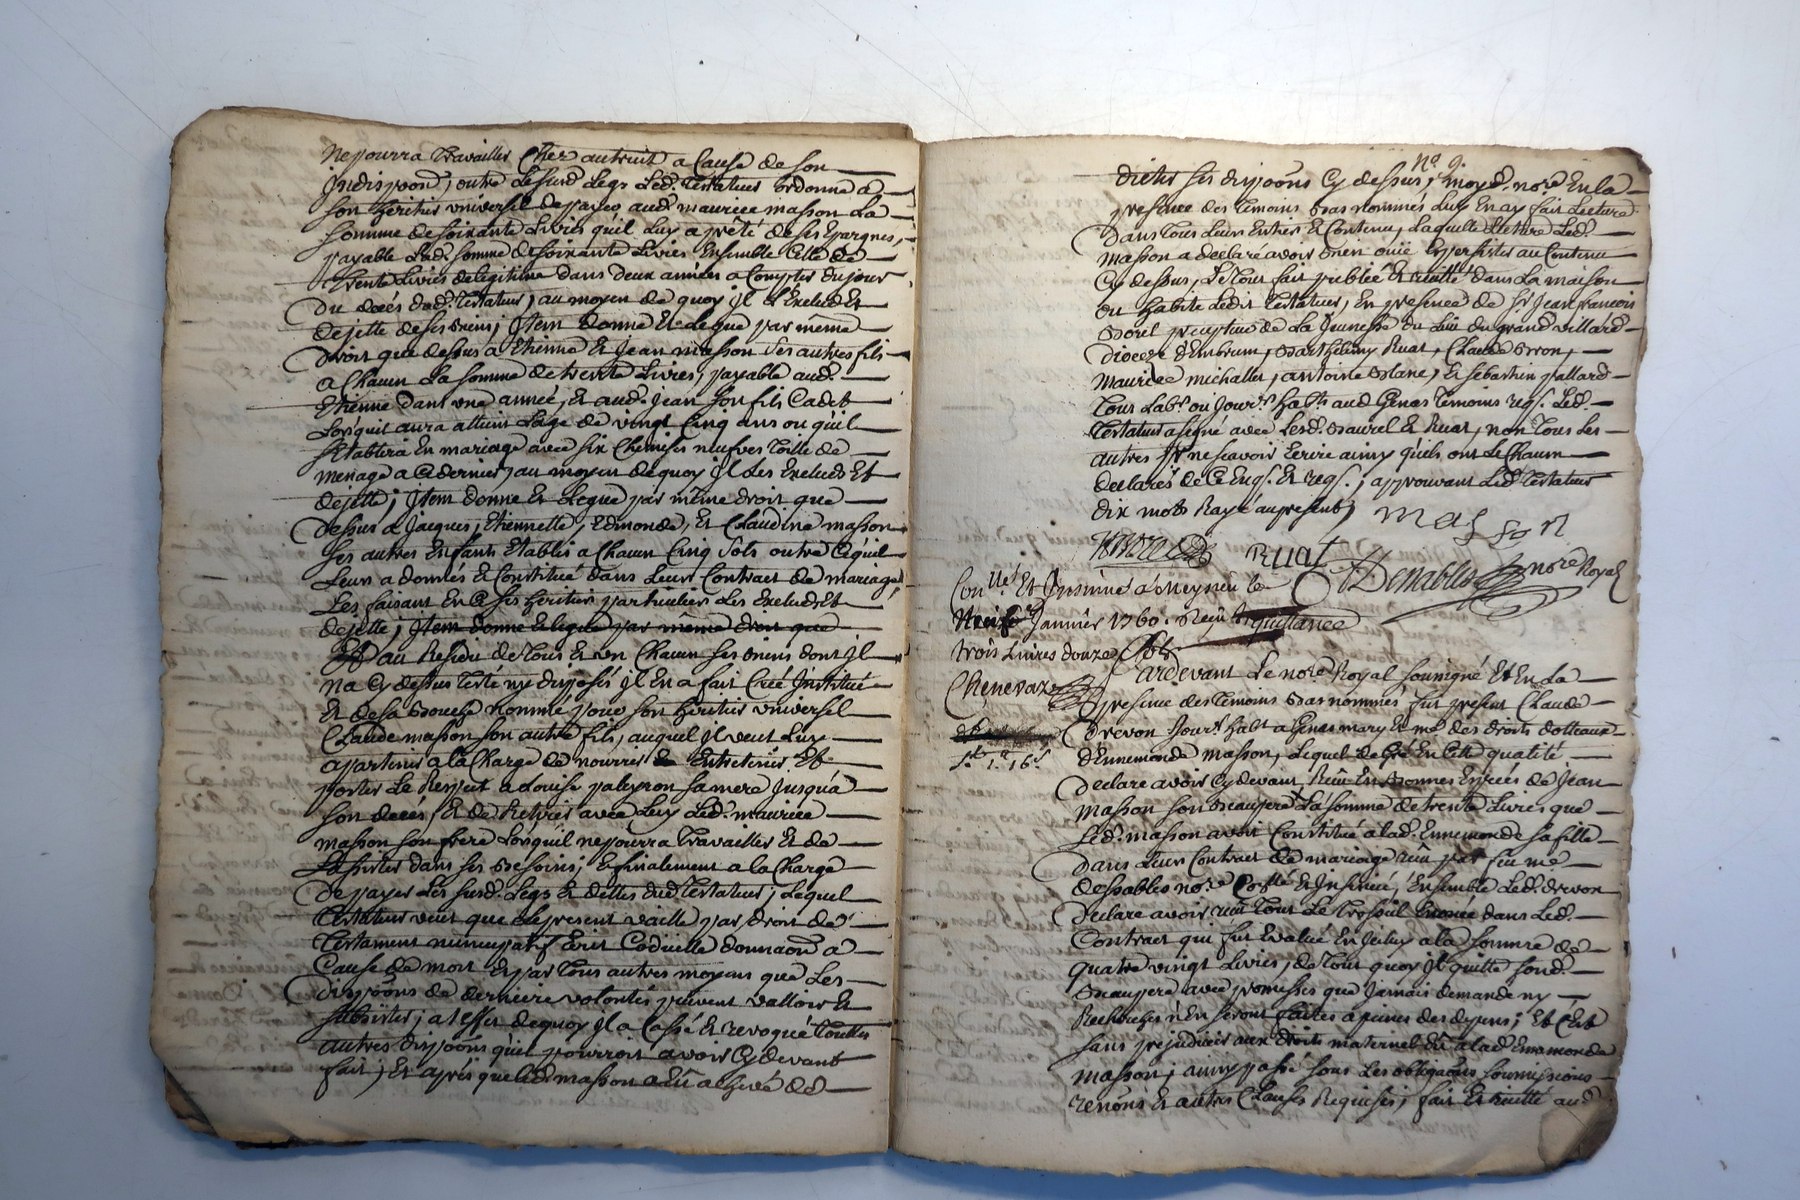 ne pourra travailler chez autruit a cause de son
indispoon, outre le susd. legs led. testateur ordonne a
son heritier universel de payer aud. maurice masson la
somme de soixante livres quil luy a prêté de ses Epargnes,
payable lad. somme de soixante livres Ensemble celle de
trente livres de legitime dans deux années a compter du jour
du décés dud. testateur, au moyen de quoy il l'Exclud Et
dejette de ses biens; Item donne Et legue par même
droit que dessus a Etienne Et Jean masson ses autres fils
a chacun la somme de trente livres, payable aud.
Etienne dans une année, Et aud. Jean son fils cadet
lorsquil aura atteint l'age de vingt cinq ans ou quil
s'Etablira En mariage avec six chemises neufves toille de
menage a ce dernier, au moyen de quoy il les Exclud Et
dejette; Item donne Et legue par même droit que
dessus a Jacques, Etiennette, Edmonde, Et Claudine masson
ses autres Enfants Etablis a chacun cinq sols outre ce quil
leur a donnés Et constitué dans leur contract de mariage,
les faisant En ce ses heritiers particuliers les Exclud Et
dejette; Item donne Et legue par même droit que
Et au Residu de tous Et un chacun ses biens dont il
na cy dessus testé ny disposés il En a fait créé Institué
Et de sa bouche nommé pour son heritier universel
Claude masson son autre fils, auquel il veut luy
apartenir a la charge de nourrir Entretenir Et
porter le Respect a Louise paleyron sa mere jusqu'a
son décés, Et de Retirer avec luy led. maurice
masson son frere lorsquil ne pourra travailler Et de
l'assister dans ses besoins; Et finalement a la charge
de payer les susd. legs Et dettes dud. testateur; lequel
testateur veut que le present vaille par droit de
testament nuncupatif Ecrit codicille donnaon a
cause de mort Et par tous autres moyens que les
dispoons de derniere volontés peuvent valloir Et
subsister; a l'effet de quoy il a cassé Et revoqué touttes
autres dispoons quil pourroit avoir cy devant
fait; Et aprés que led. masson a Eû achevé de
No. 9.
dicter ses dispoons cy dessus, moyd. nore. En la
presence des temoins bas nommés luy En ay fait lecture
dans tous leur Entier Et contenu, laquelle lecture led.
masson a declaré avoir bien ouïe Et persister au contenu
cy dessus, le tout fait publié Et recitté dans la maison
ou habite ledit testateur, En presence de sr. jean francois
borel precepteur de la jeunesse du lieu du grand villard
dioceze d'Embrun, Barthelemy Ruat, Claude bron,
Maurice michallet, antoine blanc, Et sebastien pallard
tous labrs. ou jourrs. habts. aud. Genas temoins reqs. led.
testateur a signé avec lesd. Borel Et Ruat, non tous les
autres pr. ne scavoir Ecrire ainsy quils ont le chacun
declarés de ce Enqs. Et reqs.; approuvant led. testateur
dix mots Rayé au present,
masson
Ruat
nore Royal
Conllé. Et Insinué a Meyzieu le
Neuf Janvier 1760. Reçû
trois livres douze sols
Chenevaz
quittance
1ll. 16s.
Pardevant le nore. Royal soussigné Et En la
presence des temoins bas nommés fut present Claude
drevon jourr. habt. a Genas mary Et me. des droits dotteaux
d'Ennemonde masson, lequel de gré En cette qualité
declare avoir cy devant Reçû En bonnes Especes de jean
masson son beaupere la somme de trente livres que
led. masson avoit constitué a lad. Ennemonde sa fille
dans leur contract de mariage reçû par feu me.
dessables nore. Collé Et Insinué, Ensemble led. drevon
declare avoir reçû tout le trossel Enoncé dans led.
contract qui fut Evalué En iceluy a la somme de
quatre vingt livres, de tout quoy il quitte sond.
beaupere avec promesses que jamais demande ny
Recherches n'En seront faites a peines des depens; Et c'Est
sans prejudicier aux droits maternel dû a lad. Ennemonde
masson; ainsy passé sous les obligaons soumissions
renons Et autres clauses Requises; fait Et recitté aud.